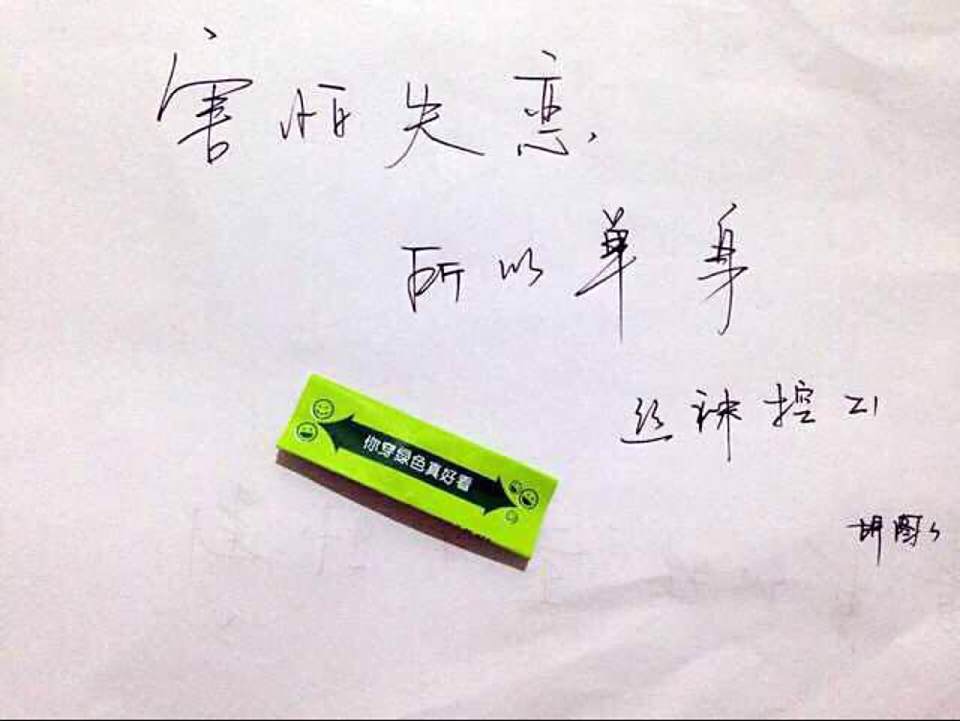 害怕失恋,
所以单身
丝袜控21
你穿绿色真好看
胡图